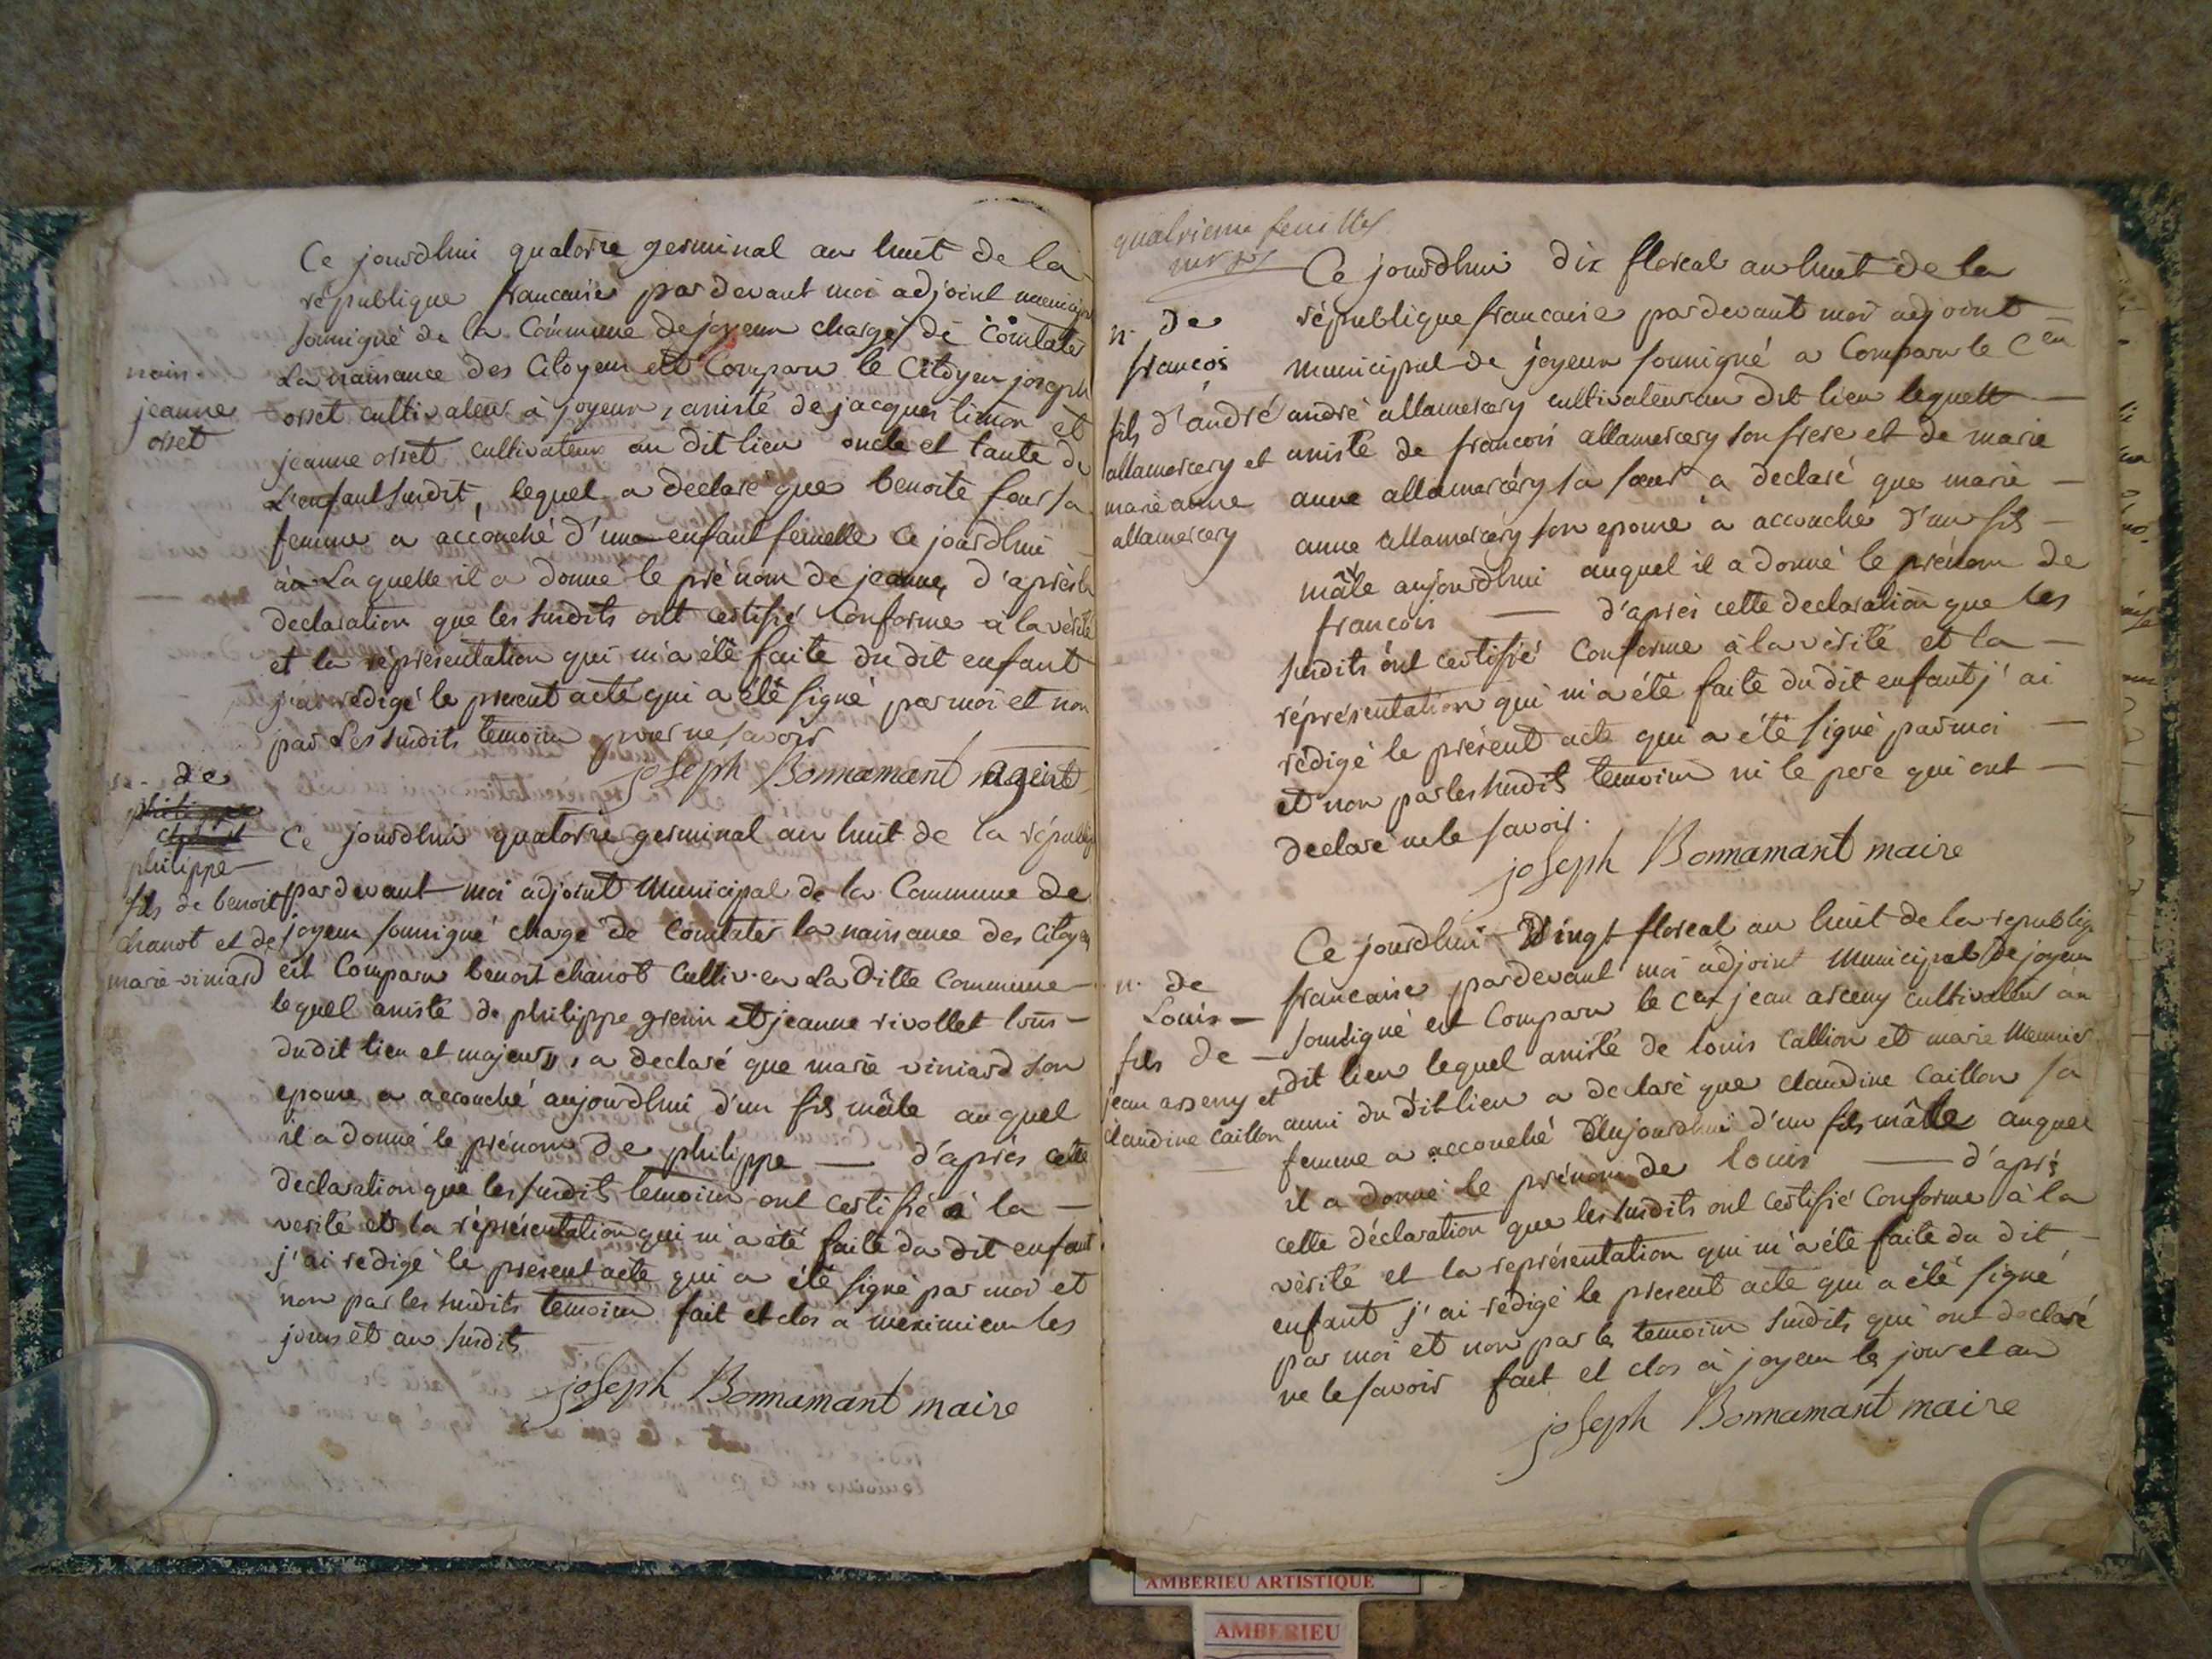 Ce jourdhui quatorze germinal an huit de la
république francaise pardevant moi adjoint municipal
soussigné de la Commune de joyeux chargé de constater
La naissance des Citoyens est Comparu le Citoyen joseph
naiss.
jeanne
orset
orset cultivateur à joyeux, assisté de jacques et
jeanne orset cultivateurs au dit lieu oncle et tante de
L'enfant susdit, lequel a declaré que benoite sa
femme a accouché d'une enfant femelle ce jourdhui
a Laquelle il a donné le prénom de jeanne, d'après la
declaration que les susdits ont certifié Conforme à la vérité
et la représentation qui m'a été faite du dit enfant
j'ai rédigé le present acte qui a été signé par moi et non
par Les susdits temoins pour ne savoir
joseph Bonnamant agent
de
philippe
fils de benoit
chanot et de
marie viniard
Ce jourdhui quatorze germinal an huit de la républiq
pardevant moi adjoint Municipal de la Commune de
joyeux soussigné chargé de Constater la naissance des Citoyens
est Comparu benoit chanot Cultiv. en La Ditte Commune
lequel assisté de philippe et jeanne rivollet tous
dudit lieu et majeurs, a declaré que marie viniard son
epouse a accouché aujourdhui d'un fils mâle auquel
il a donné le prénom de philippe — d'après cette
declaration que les susdits temoins ont certifié à la
verité et la représentation qui m'a été faite du dit enfant
j'ai rédigé le present acte qui a été signé par moi et
non par les susdits temoins fait et clos a meximieux les
jours et an susdits
joseph Bonnamant maire
quatrieme feuillet
n. De
francois
fils d'andré
allamercery et
marie anne
allamercery
Ce jourdhui dix floreal an huit de la
république francaise pardevant moi adjoint
municipal de joyeux soussigné a Comparu le Cen
andré allamercery cultivateur au dit lieu lequell
assisté de francois allamercery son frere et de marie
anne allamercery sa sœur a declaré que marie
anne allamercery son epouse a accouché d'un fils
mâle aujourdhui auquel il a donné le prénom de
francois — d'après cette declaration que les
susdits ont certifié Conforme à la vérité et la
réprésentation qui m'a été faite du dit enfant j'ai
rédigé le présent acte qui a été signé par moi
et non par les susdits temoins ni le pere qui ont
declaré ne le savoir.
joseph Bonnamant maire
n. de
Louis
fils de
jean asseny et
claudine Caillon
Ce jourdhui Vingt floreal an huit de la republiq
francaise pardevant moi adjoint Municipal de joyeux
soussigné est Comparu le Cen jean asceny cultivateur au
dit lieu lequel assisté de louis Callion et marie Meunier
aussi du dit lieu a declaré que claudine Caillon sa
femme a accouché Aujourdhui d'un fils mâlle auquel
il a donné le prénom de louis — d'après
cette déclaration que les susdits ont Certifié Conforme à la
vérité et la représentation qui m'a été faite du dit
enfant j'ai rédigé le present acte qui a été signé
par moi et non par les temoins susdits qui ont declaré
ne le savoir fait et clos à joyeux le jour et an
joseph Bonnamant maire
AMBERIEU ARTISTIQUE
AMBERIEU